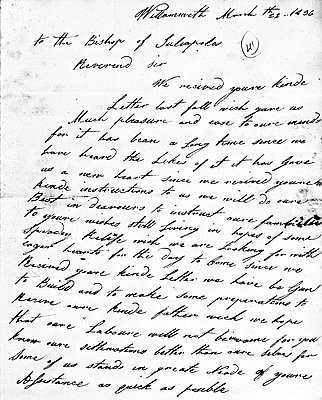 Willammeth March th 22 . 1836
to the Bishop of Juliopolas
Reverend sir
We recived youre kinde
Letter last fall wich gave us
Much pleasure and ease to oure minds
for it has bean a Long time since we
have heard the Likes of it it has Gave
us a new heart since we recived youre
kinde instructions to us we will do oure
Best in deavours to instruct oure families
to youre wishes still Living in hopes of some
Speedy Relefe wich we are Looking for with
eager hearts for the day to Come since we
Recived youre kinde Letter we have be Gun
to Build and to make some preparations to
Recive oure kinde father wich we hope
that oure Laboure will not be in vane for you
know oure sithuations better than oure selves for
Some of us stand in greate Neade of youre
Assistance as quick as posible